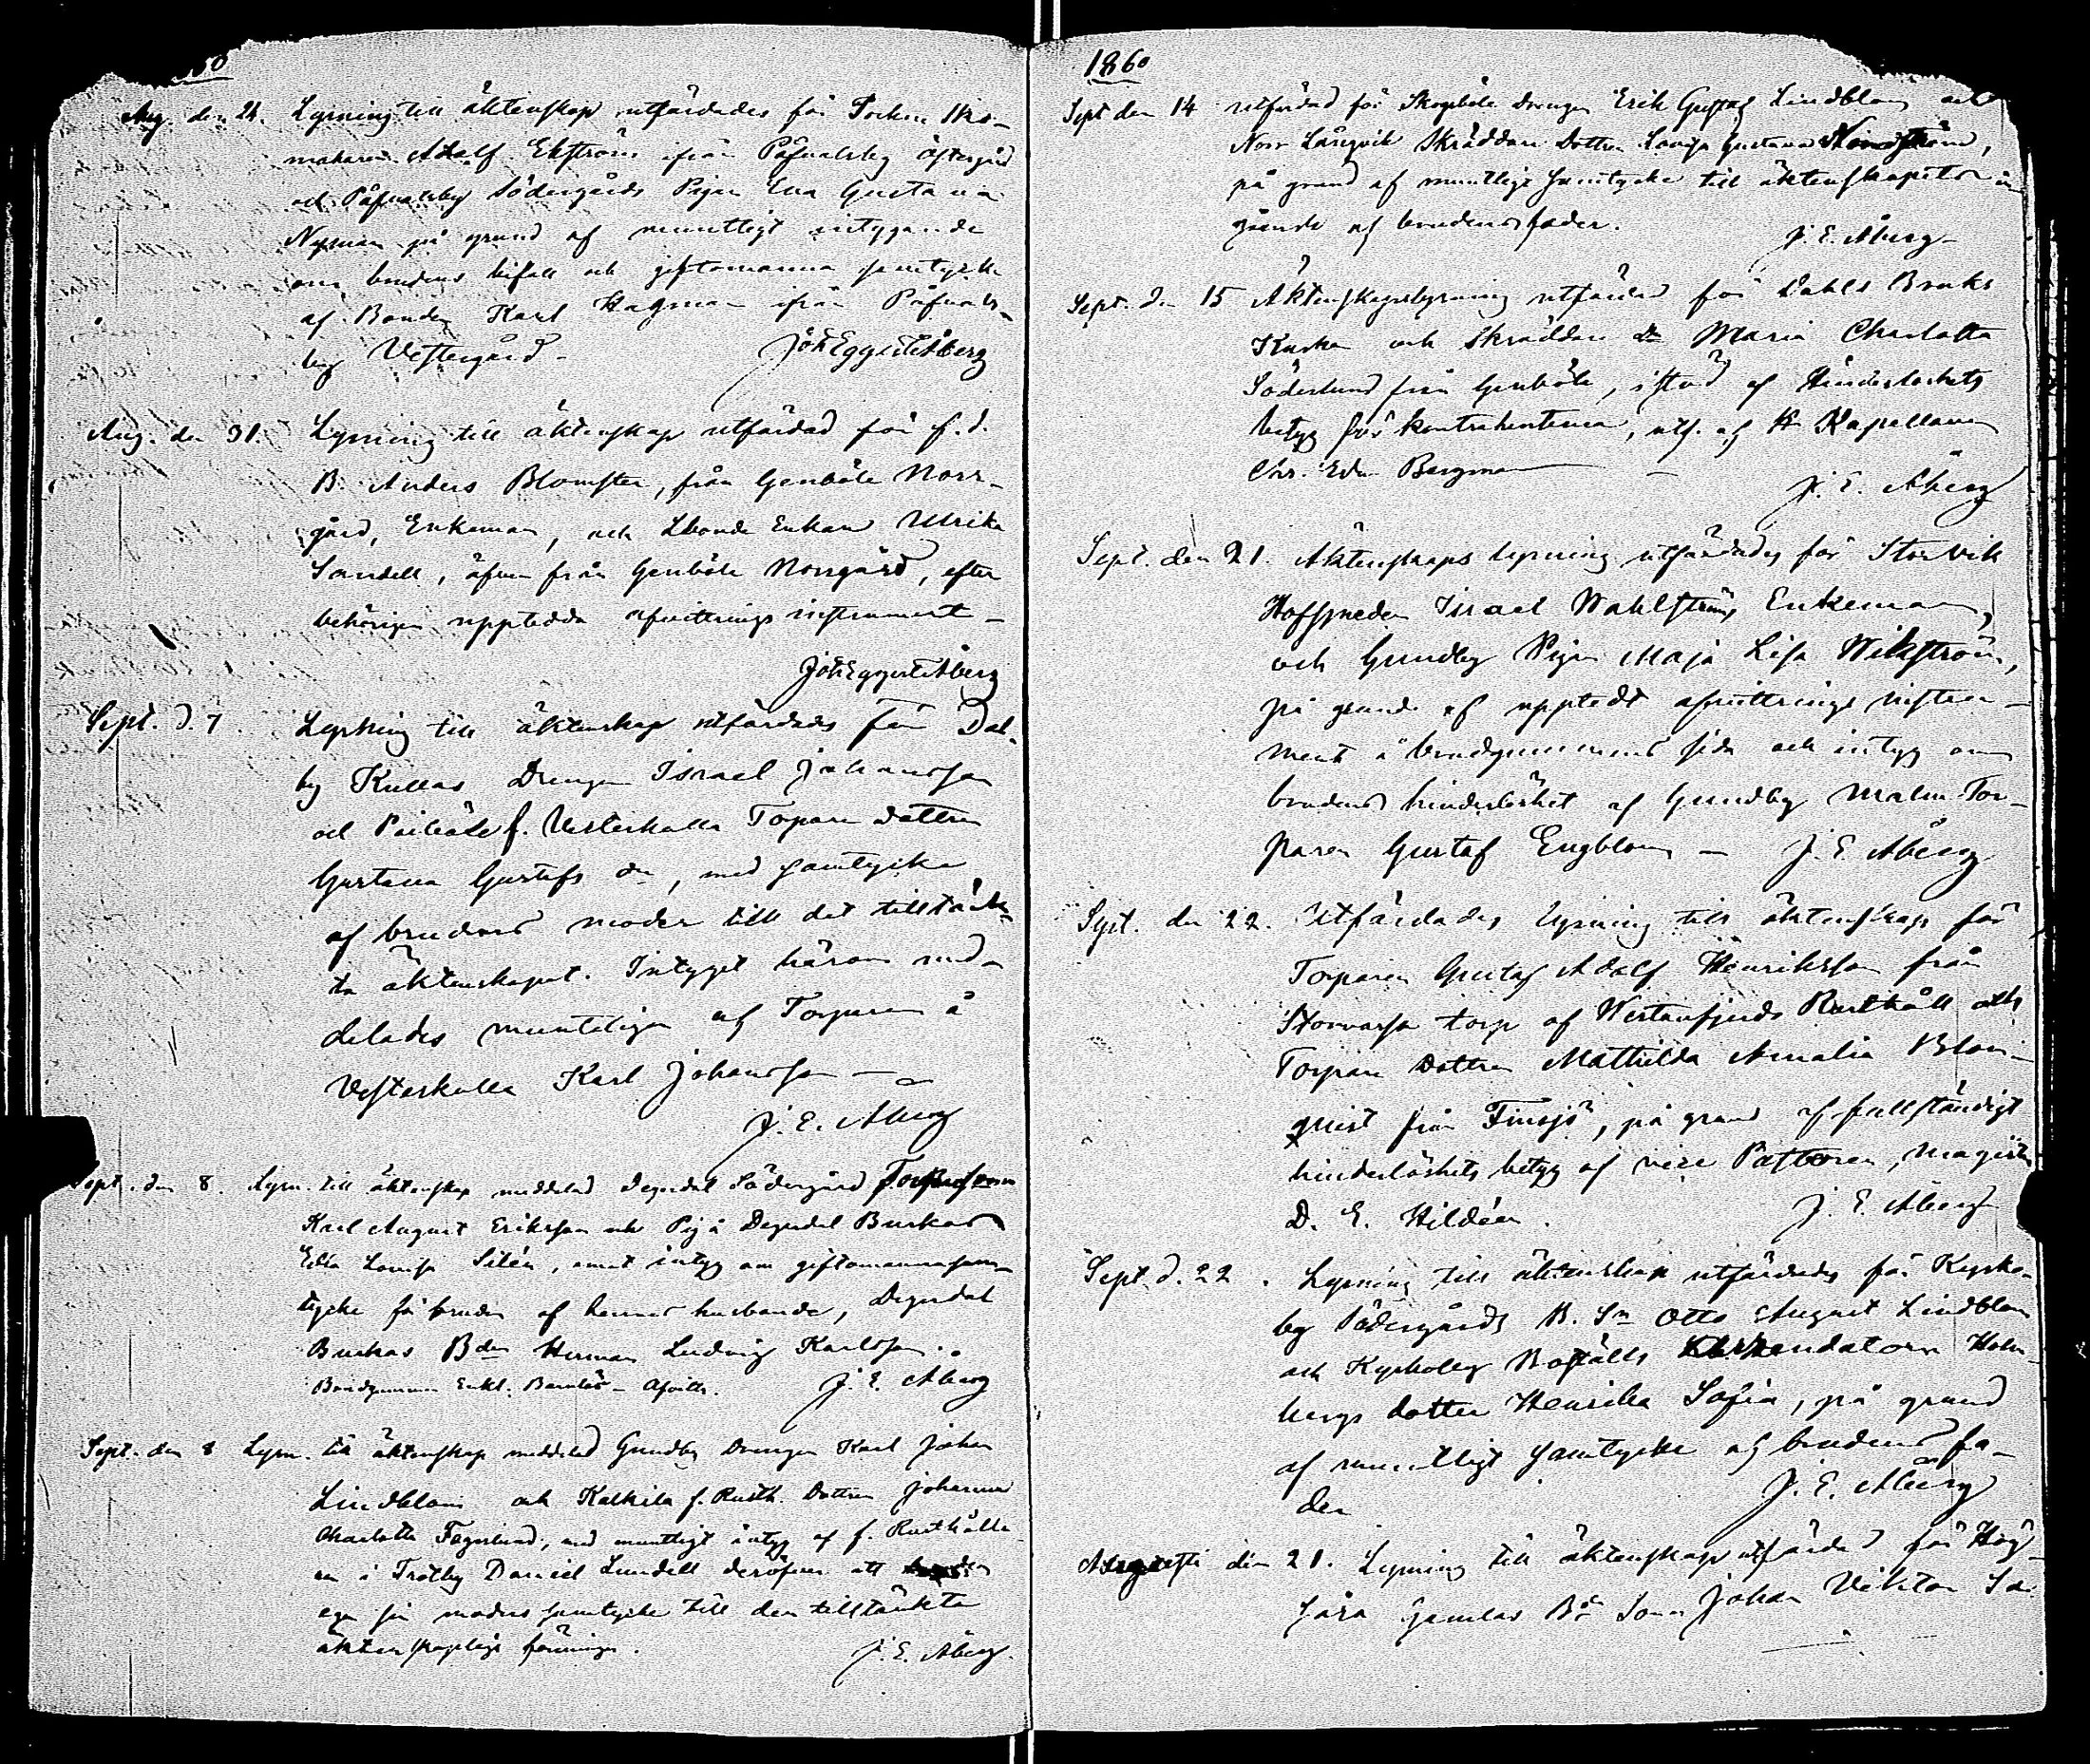 60
Aug. den 24. Lysning till äktenskap utfärdades för Socken Sko-
makaren Adolf Ekström ifrån Påfvalsby Östergård
och Påfvalsby Södergårds Pigan Eva Gustava
Nyman på grund af muntligt intygande
om brudens bifall och giftomanna samtycke
af Bonden Karl Hagman ifrån Påfvals-
by Vestergård. Joh Eggert Åberg
Aug. den 31. Lysning till äktenskap utfärdad för f.d.
B. Anders Blomster, från Genböle Norr-
gård, Enkeman, och Enkan Ulrika
Sandell, äfven från Genböle Norrgård, efter
behörigen upptedda afvittrings instrument –
Joh Eggert Åberg
Sept. d. 7. Lysning till äktenskap utfärdads för Dal-
by Kullas Drengen Israel Johansson
och f. Vesterkulla Torpare dottren
Gustava Gustafs dr, med samtycke
af brudens moder till det tilltänk-
ta äktenskapet. Intyget härom med-
delades muntligen af Torparen å
Vesterkulla Karl Johansson –
J. E. Åberg
Sept. den 8. Lysn. till äktenskap meddelad Degerdal Södergård
Karl August Eriksson och Pig. å Degerdal Buskas
Edla Lovisa Silén, emot intyg om giftomannasam-
tycke för bruden af hennes husbonde, Degerdal
Buskas Bden Herman Ludvig Karlsson.
Brudgummen Enkl. Barnlös – Afvittr. J. E. Åberg
Sept. den 8 Lysn. till äktenskap meddelad Gundby Drengen Karl Johan
Lindblom och Kalkila f. Rusth. Dottren Johanna
Charlotta Fagerlund, med muntligt intyg af f. Rusthålla-
ren i Trötby Daniel Lundell deröfver att bruden
eger sin moders samtycke till den tilltänkta
äktenskapliga föreningen. J. E. Åberg.
1860
Sept den 14 utfärdad för Skogsböle Drengen Erik Gustaf Lindblom och
Norr Långvik Skräddare Dottren Lovisa Gustava
på grund af muntligt samtycke till äktenskapets in-
gående af brudens fader. J. E. Åberg
Sept. d. 15 Äktenskapslysning utfärdad för Dahls Bruks
Kusken och Skräddare dr Maria Charlotta
Söderlund från Genböle, i stöd af Hinderlöshets
betyg för kontrahenterna, utf. af Hr Kapellanen
Chr. Edv. Bergman – J. E. Åberg
Sept. den 21. Äktenskaps lysning utfärdades för Storvik
Hofsmeden Israel Wahlström, Enkeman,
och Gundby Pigan Maja Lisa Wikström,
på grund af uppteedt afvittrings instru-
ment å brudgummens sida och intyg om
brudens hinderlöshet af Gundby Malm Tor-
paren Gustaf Engblom – J. E. Åberg
Sept. den 22. Utfärdades lysning till äktenskap för
Torparen Gustaf Adolf Henriksson från
Storvarpa torp af Westanfjerds Rusthåll och
Torpare Dottren Mathilda Amalia Blom-
qvist från Finsjö, på grund af fullständigt
hinderlöshets betyg af vice Pastoren, Magister
D. E. Hildéen. J. E. Åberg
Sept. d. 22. Lysning till äktenskap utfärdades för Kyrko-
by Södergårds B. Sn Otto August Lindblom
och Kyrkoby Boställs Holm-
bergs dotter Henrika Sofia, på grund
af muntligt samtycke af brudens fa-
der J. E. Åberg
Augusti den 21. Lysning till äktenskap utfärdad för Hög-
såra Gamlas Bd Sonen Johan Viktor